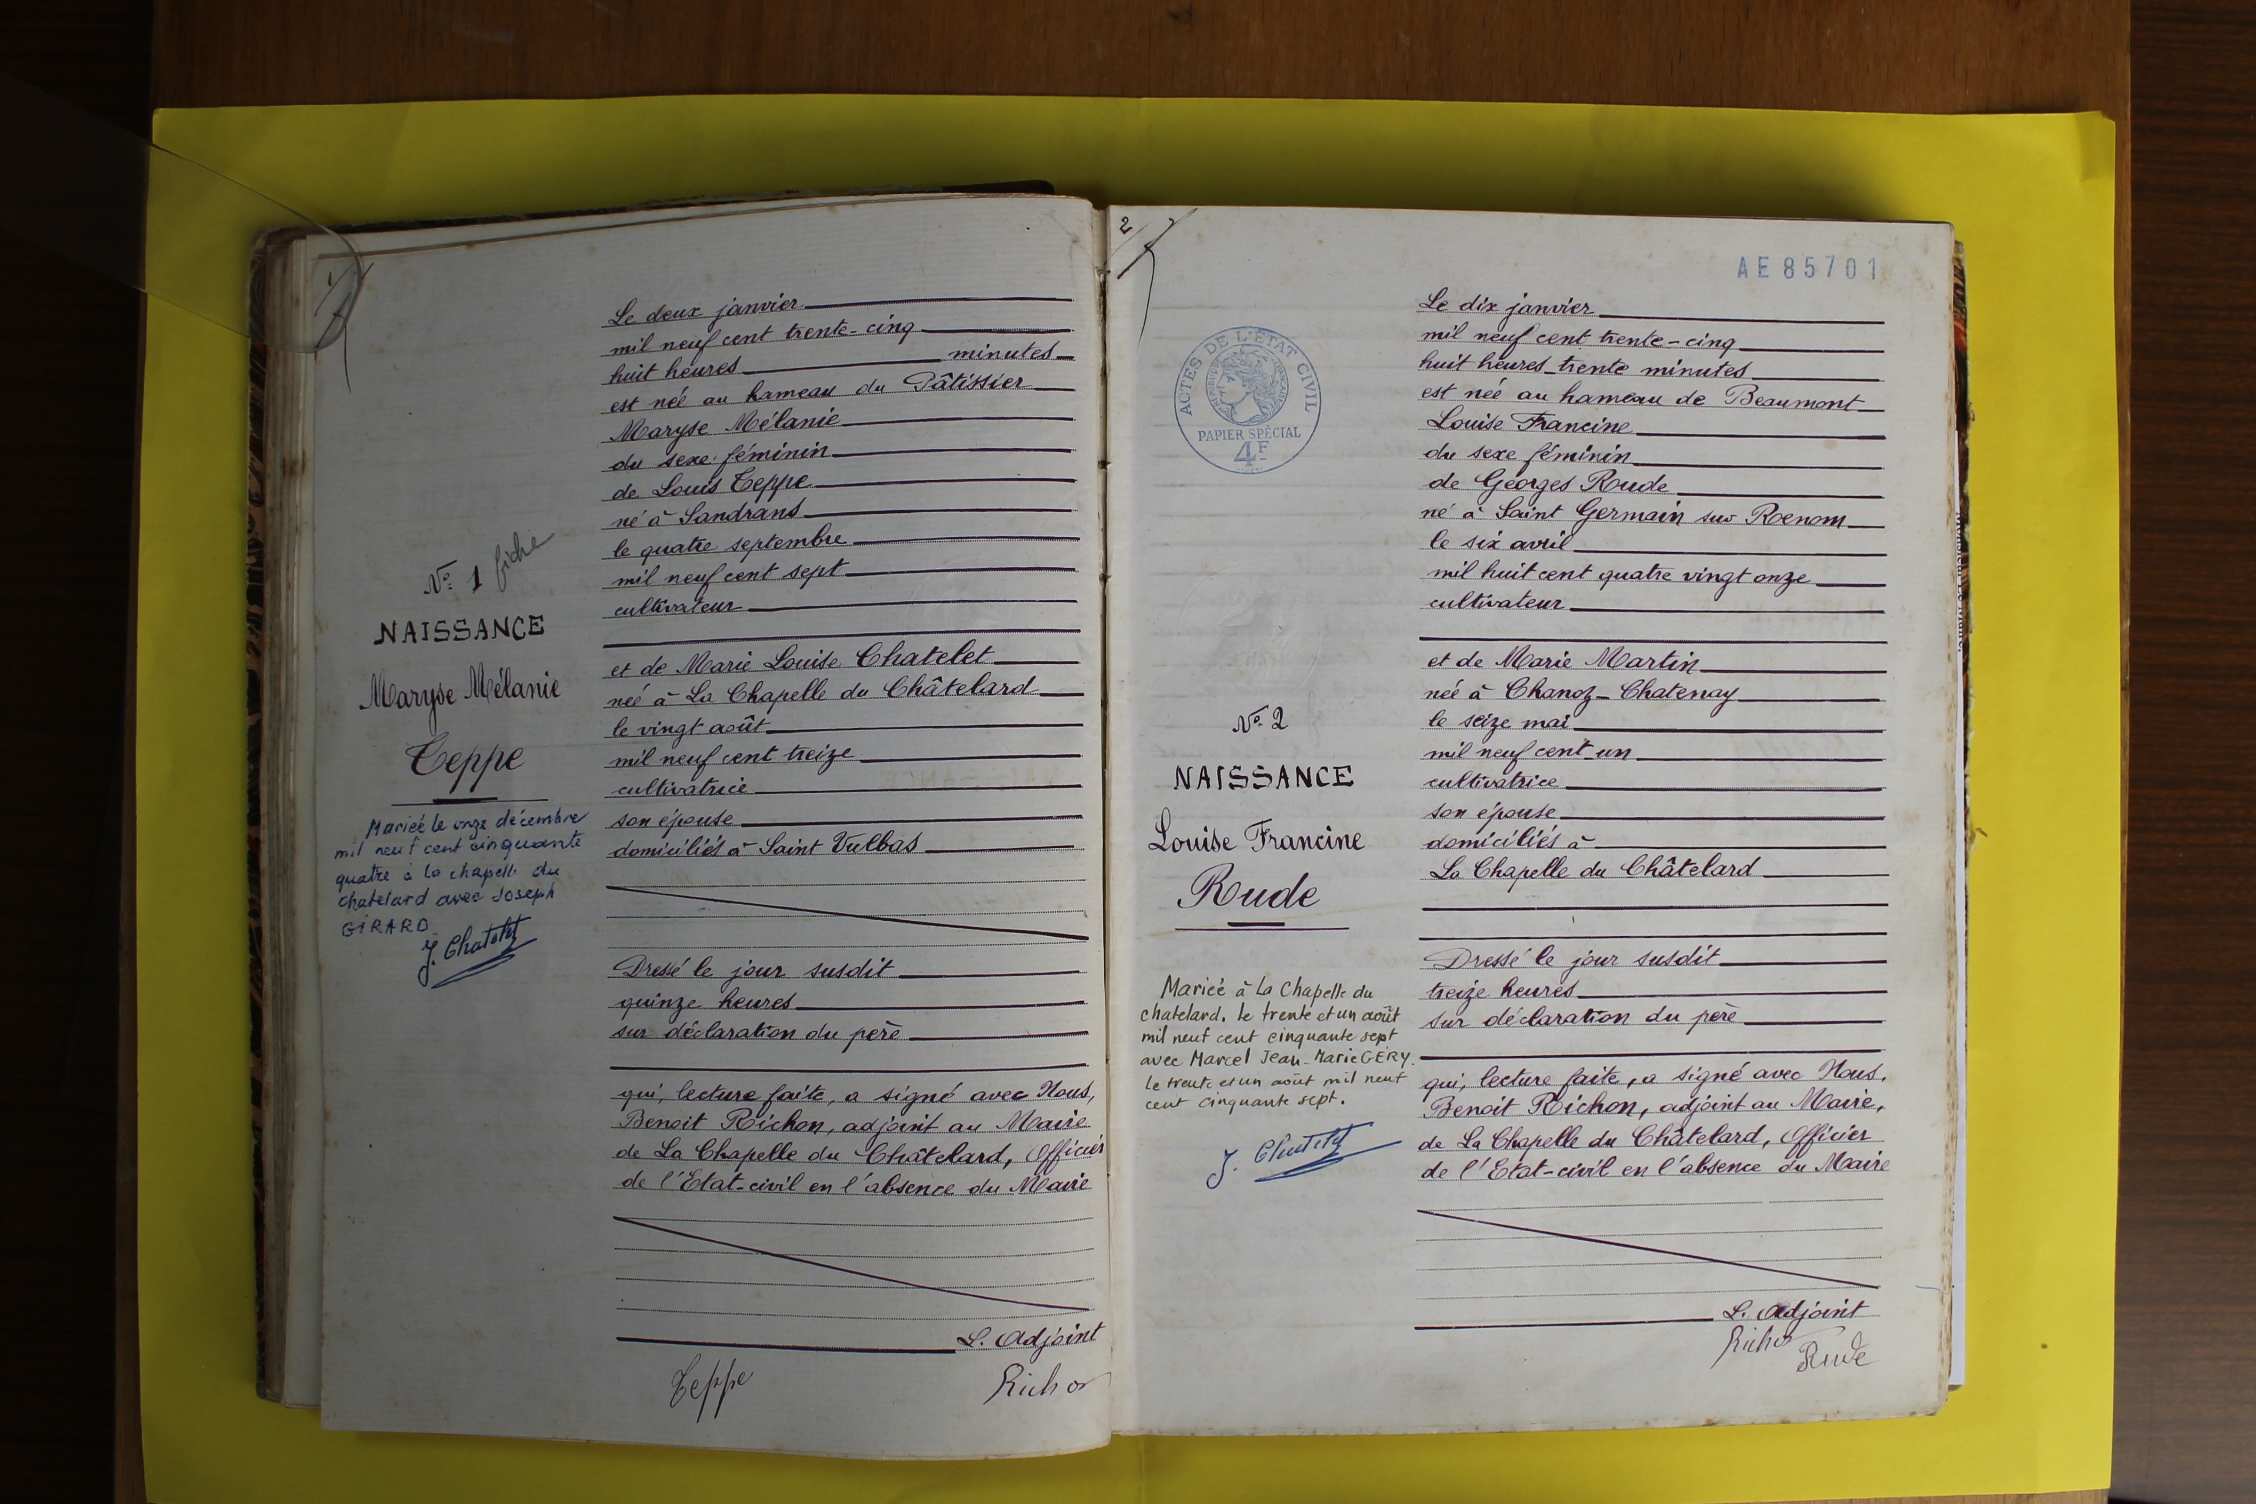 N° 1 fiche
NAISSANCE
Maryse Mélanie
Teppe
Mariée le onze décembre
mil neuf cent cinquante
quatre à la chapelle du
chatelard avec Joseph
GIRARD
J. Chatelet
Le deux janvier
mil neuf cent trente-cinq
huit heures minutes
est née au hameau du Pâtissier
Maryse Mélanie
du sexe féminin
de Louis Teppe
né à Sandrans
le quatre septembre
mil neuf cent sept
cultivateur
et de Marie Louise Chatelet
née à La Chapelle du Châtelard
le vingt août
mil neuf cent treize
cultivatrice
son épouse
domiciliés à Saint Vulbas
Dressé le jour susdit
quinze heures
sur déclaration du père
qui, lecture faite, a signé avec Nous,
Benoit Richon, adjoint au Maire
de La Chapelle du Châtelard, Officier
de l'Etat-civil en l'absence du Maire
L. Adjoint
Teppe Richon
2
AE 85701
ACTES DE L'ÉTAT CIVIL
PAPIER SPÉCIAL
4F
N° 2
NAISSANCE
Louise Francine
Rude
Mariée à La Chapelle du
chatelard. le trente et un août
mil neuf cent cinquante sept
avec Marcel Jean-Marie GÉRY.
Le trente et un août mil neuf
cent cinquante sept.
J. Chatelet
Le dix janvier
mil neuf cent trente-cinq
huit heures trente minutes
est née au hameau de Beaumont
Louise Francine
du sexe féminin
de Georges Rude
né à Saint Germain sur Renom
le six avril
mil huit cent quatre vingt onze
cultivateur
et de Marie Martin
née à Chanoz-Chatenay
le seize mai
mil neuf cent un
cultivatrice
son épouse
domiciliés à
La Chapelle du Châtelard
Dressé le jour susdit
treize heures
sur déclaration du père
qui, lecture faite, a signé avec Nous,
Benoit Richon, adjoint au Maire,
de La Chapelle du Châtelard, Officier
de l'Etat-civil en l'absence du Maire
L. Adjoint
Richon
Rude